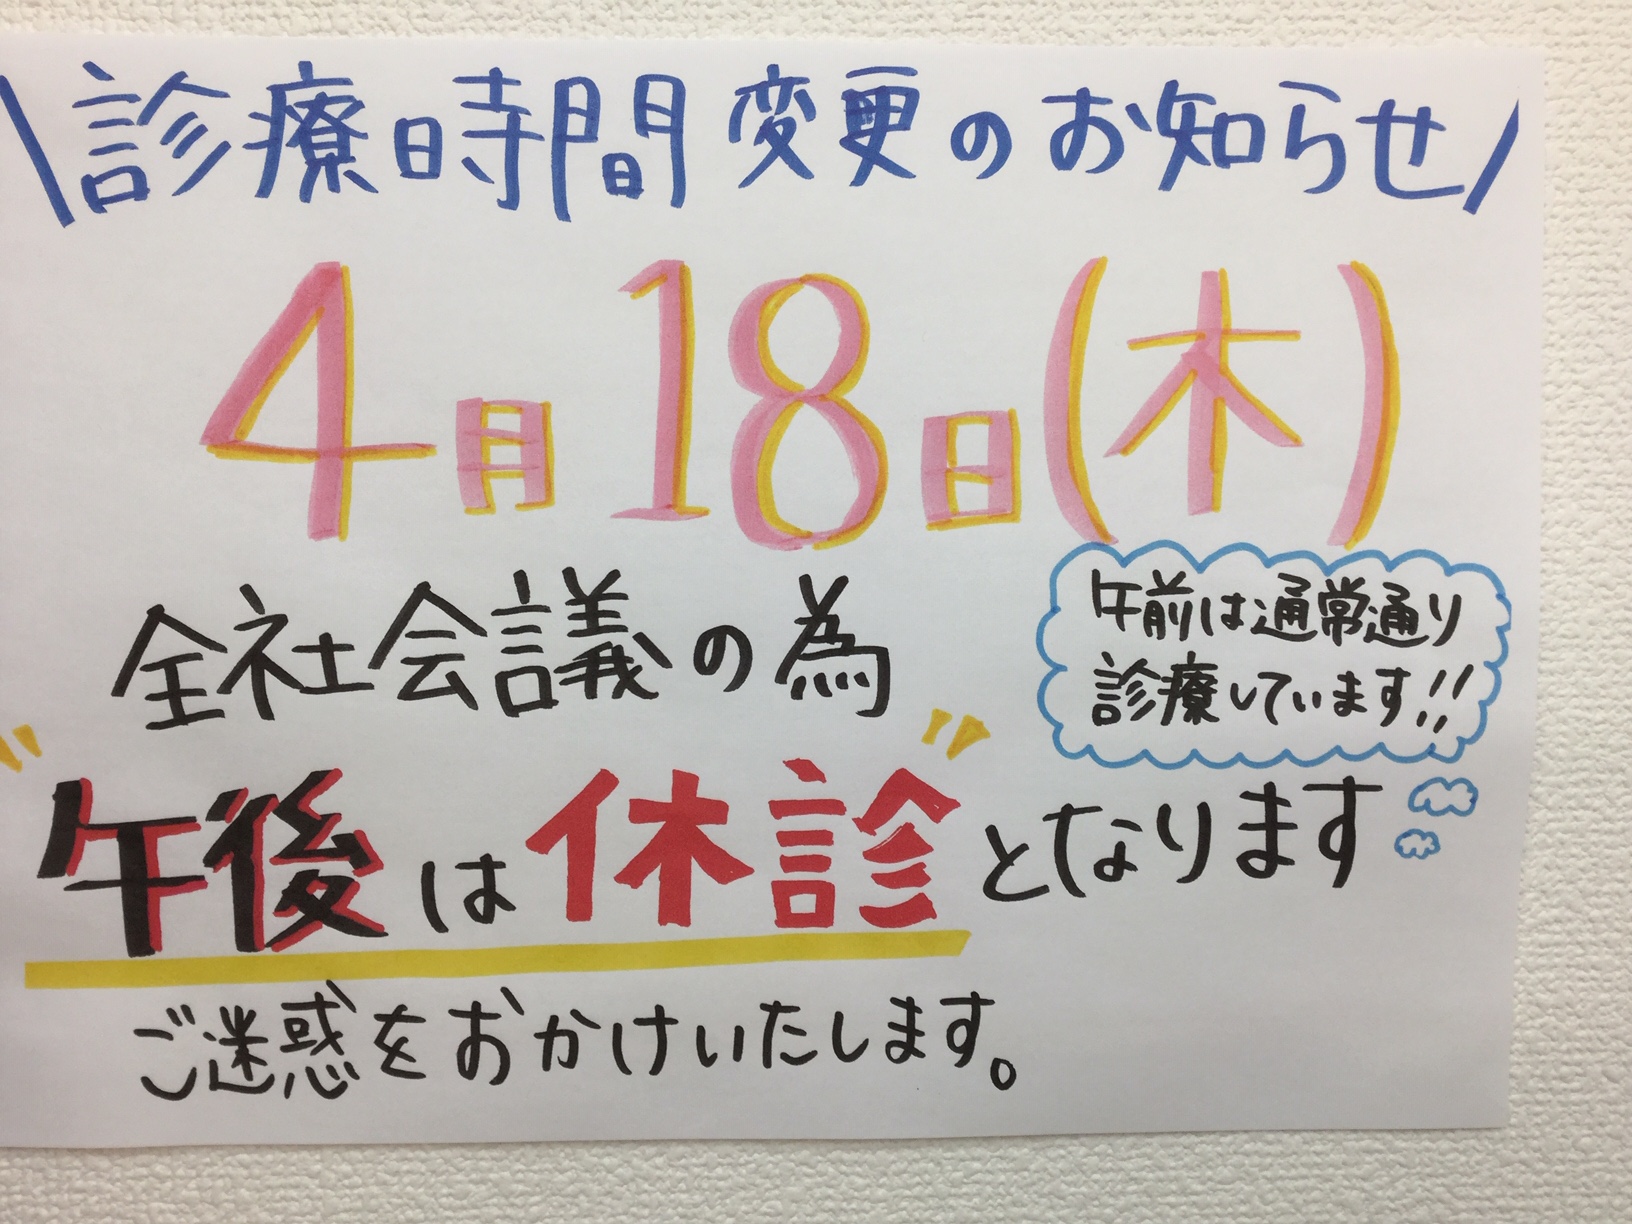 \診療時間変更のお知らせ/
4月18日(木)
全社会議の為
午前は通常通り
診療しています!!
午後は休診となります
ご迷惑をおかけいたします。